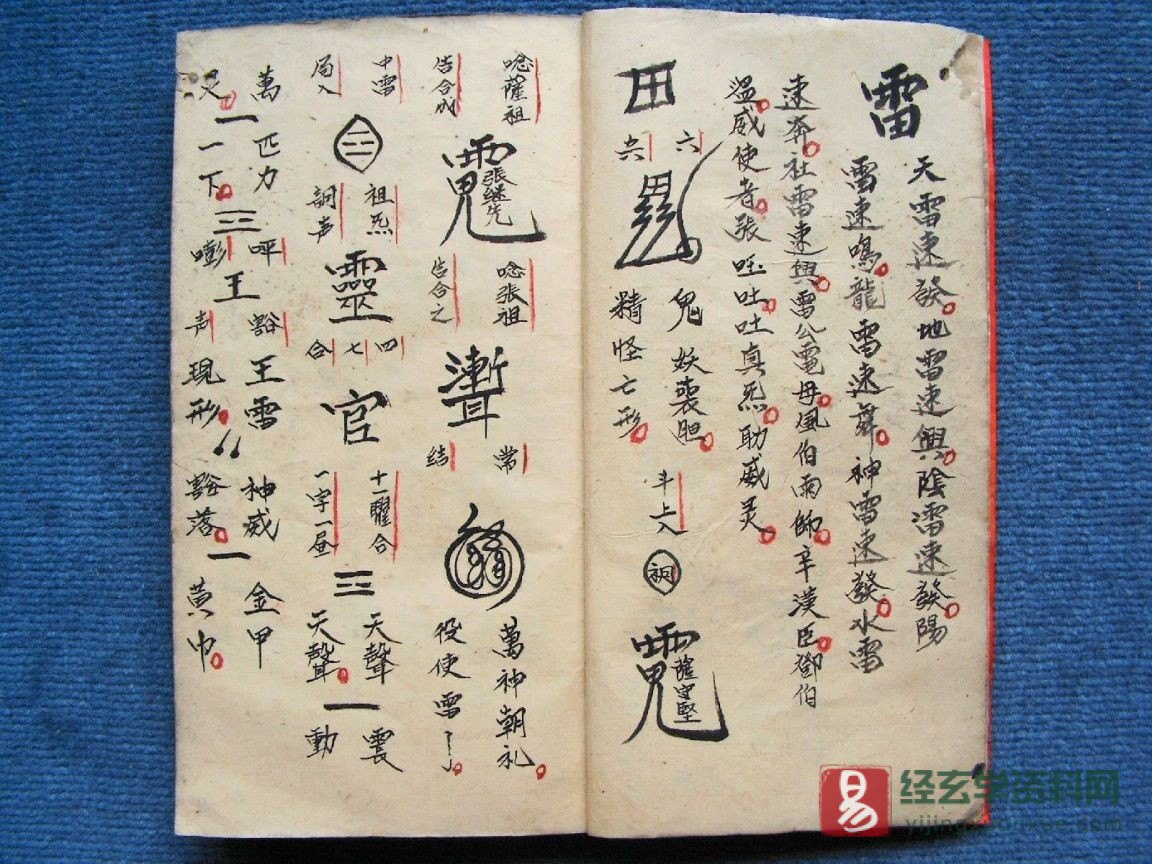 雷
天雷速發地雷速興陰雷速發陽
雷速鳴龍雷速舞神雷速發水雷
速奔社雷速興雷公電母風伯雨師辛漢臣鄧伯
溫威使者張哐吐吐真炁助威灵
田
六
鬼妖喪胆
精怪亡形
斗上入
薩守堅
唸薩祖
告合成
張継先
唸張祖
告合之
聻
常
結
萬神朝礼
役使雷
中雷
局入
祖炁
詞声
靈
四
七
合
官
十一曜合
一字一昼
三
天聲
天聲
一
震
動
萬匹力
一
一下
三
呯
嘭
王
豁
声
王雷
現形
神威
豁落
一
金甲
黃巾
易
经玄学资料网
yijingxuanxue.com